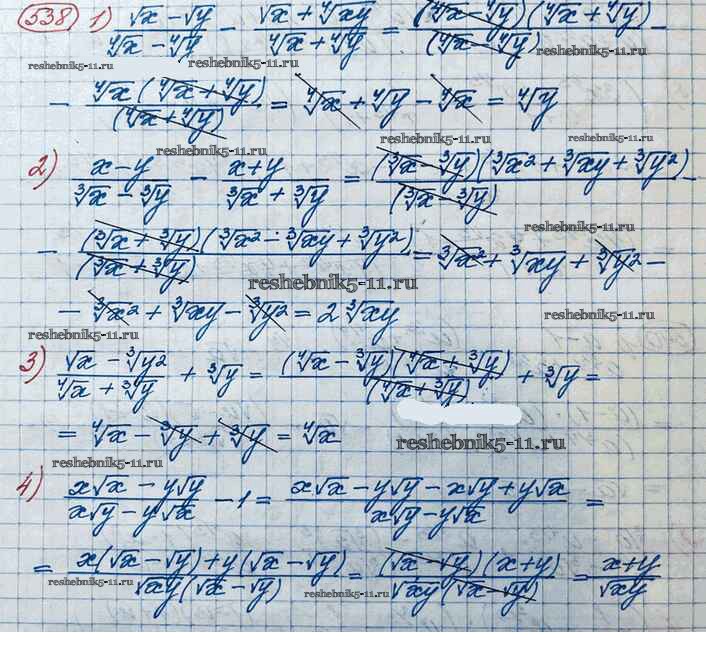 538 1) (√x − √y)/(⁴√x − ⁴√y) − (√x + ⁴√xy)/(⁴√x + ⁴√y) = ((⁴√x − ⁴√y)(⁴√x + ⁴√y))/(⁴√x − ⁴√y) −
reshebnik5-11.ru reshebnik5-11.ru reshebnik5-11.ru
− (⁴√x(⁴√x + ⁴√y))/(⁴√x + ⁴√y) = ⁴√x + ⁴√y − ⁴√x = ⁴√y
reshebnik5-11.ru reshebnik5-11.ru reshebnik5-11.ru
2) (x − y)/(³√x − ³√y) − (x + y)/(³√x + ³√y) = ((³√x − ³√y)(³√x² + ³√xy + ³√y²))/(³√x − ³√y) −
reshebnik5-11.ru
− ((³√x + ³√y)(³√x² − ³√xy + ³√y²))/(³√x + ³√y) = ³√x² + ³√xy + ³√y² −
reshebnik5-11.ru
− ³√x² + ³√xy − ³√y² = 2 ³√xy
reshebnik5-11.ru reshebnik5-11.ru
3) (√x − ³√y²)/(⁴√x + ³√y) + ³√y = ((⁴√x − ³√y)(⁴√x + ³√y))/(⁴√x + ³√y) + ³√y =
= ⁴√x − ³√y + ³√y = ⁴√x
reshebnik5-11.ru reshebnik5-11.ru
4) (x√x − y√y)/(x√y − y√x) − 1 = (x√x − y√y − x√y + y√x)/(x√y − y√x) =
= (x(√x − √y) + y(√x − √y))/(√xy(√x − √y)) = ((√x − √y)(x + y))/(√xy(√x − √y)) = (x + y)/√xy
reshebnik5-11.ru reshebnik5-11.ru